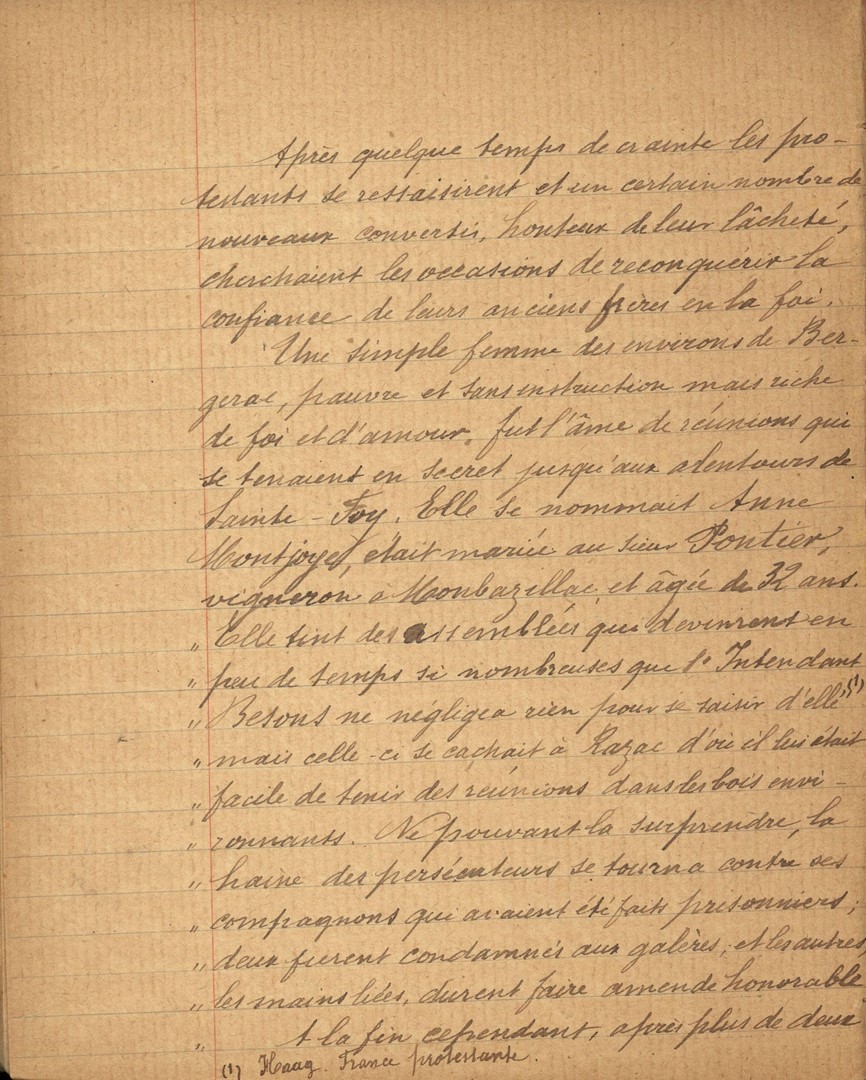 Après quelque temps de crainte les pro-
testants se ressaisirent et un certain nombre de
nouveaux convertis, honteux de leur lâcheté,
cherchaient les occasions de reconquérir la
confiance de leurs anciens frères en la foi.
Une simple femme des environs de Ber-
gerac, pauvre et sans instruction mais riche
de foi et d'amour, fut l'âme de réunions qui
se tenaient en secret jusqu'aux alentours de
Sainte-Foy. Elle se nommait Anne
Montjoye, était mariée au sieur Pontier,
vigneron à Monbazillac, et âgée de 32 ans.
„ Elle tint des assemblées qui devinrent en
„ peu de temps si nombreuses que l'Intendant
„ Besons ne négligea rien pour se saisir d'elle (1)
„ mais celle-ci se cachait à Razac d'où il lui était
„ facile de tenir des réunions dans les bois envi-
„ ronnants. Ne pouvant la surprendre, la
„ haine des persécuteurs se tourna contre ses
„ compagnons qui avaient été faits prisonniers;
„ deux furent condamnés aux galères, et les autres,
„ les mains liées, durent faire amende honorable
„ A la fin cependant, après plus de deux
(1) Haag. France protestante.